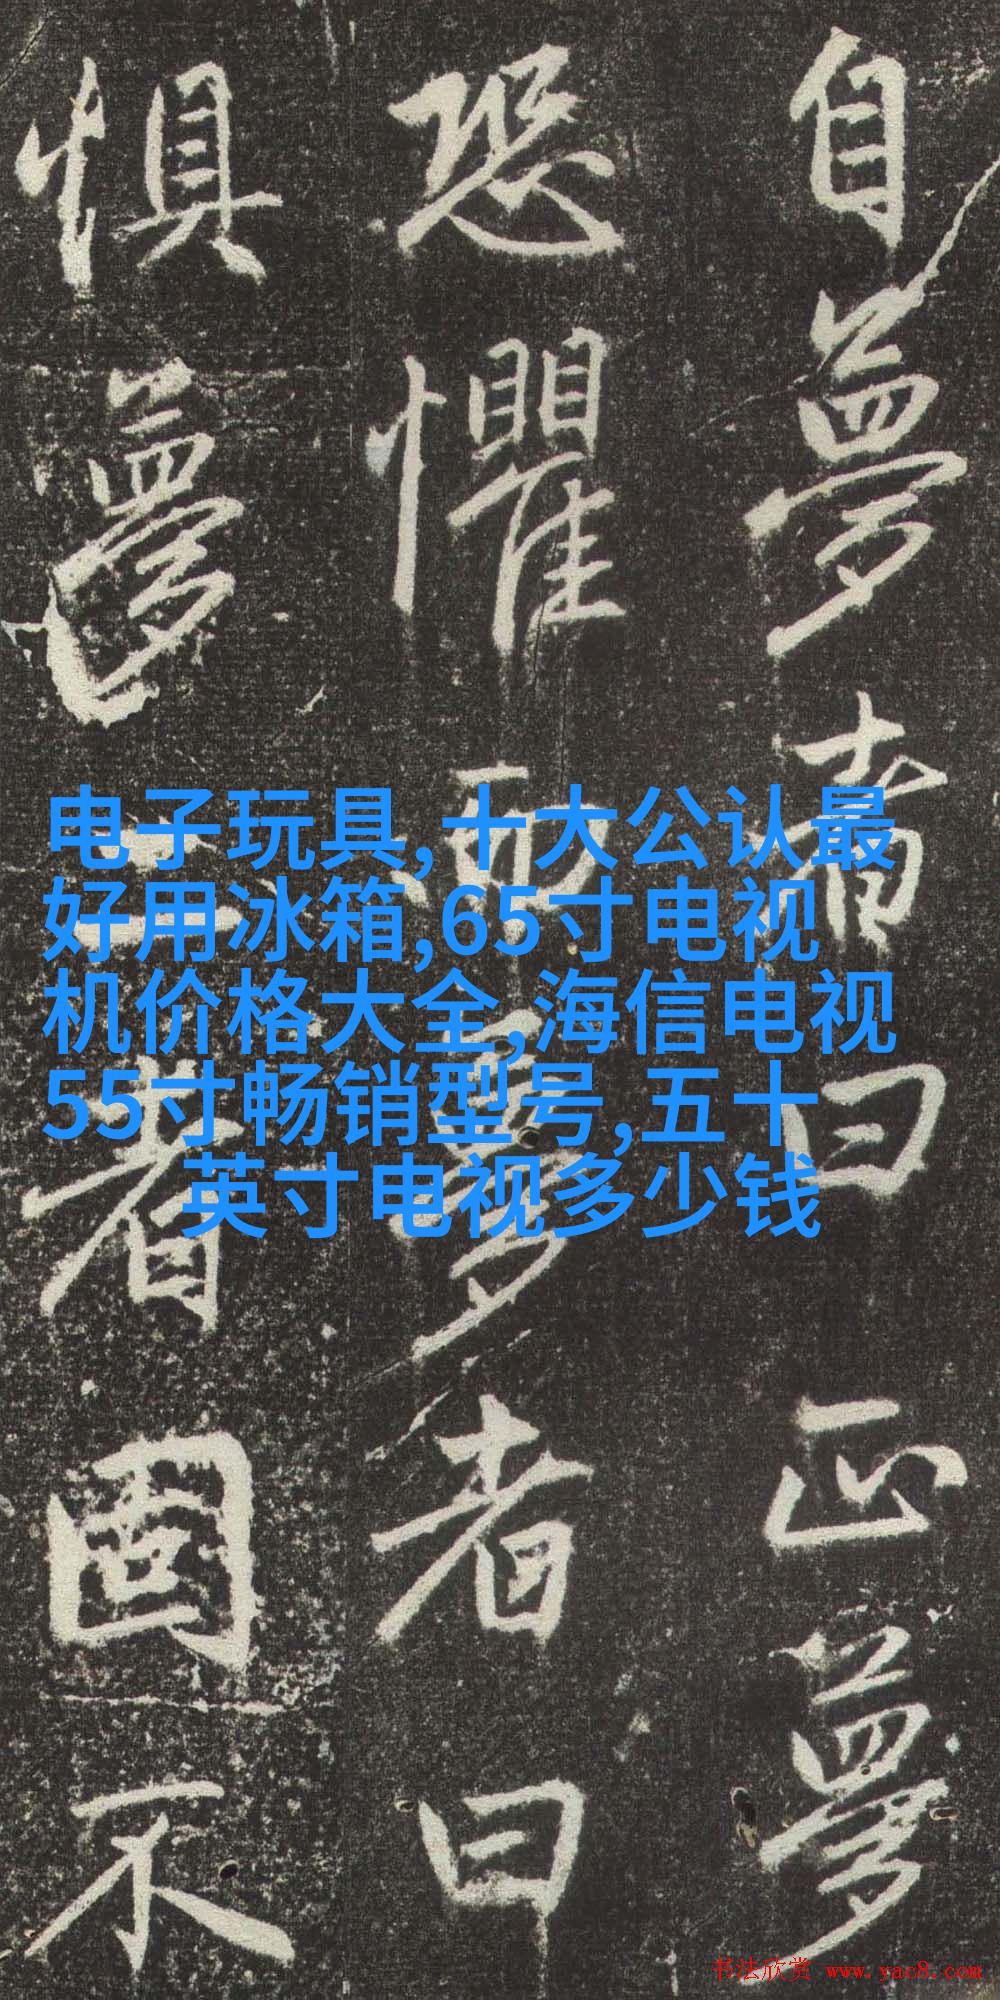 自夢者曰正夢
恐懼而夢者曰
惧夢者固不
电子玩具,十大公认最
好用冰箱,65寸电视
机价格大全,海信电视
55寸畅销型号,五十
英寸电视多少钱
书法欣赏 www.yac8.com